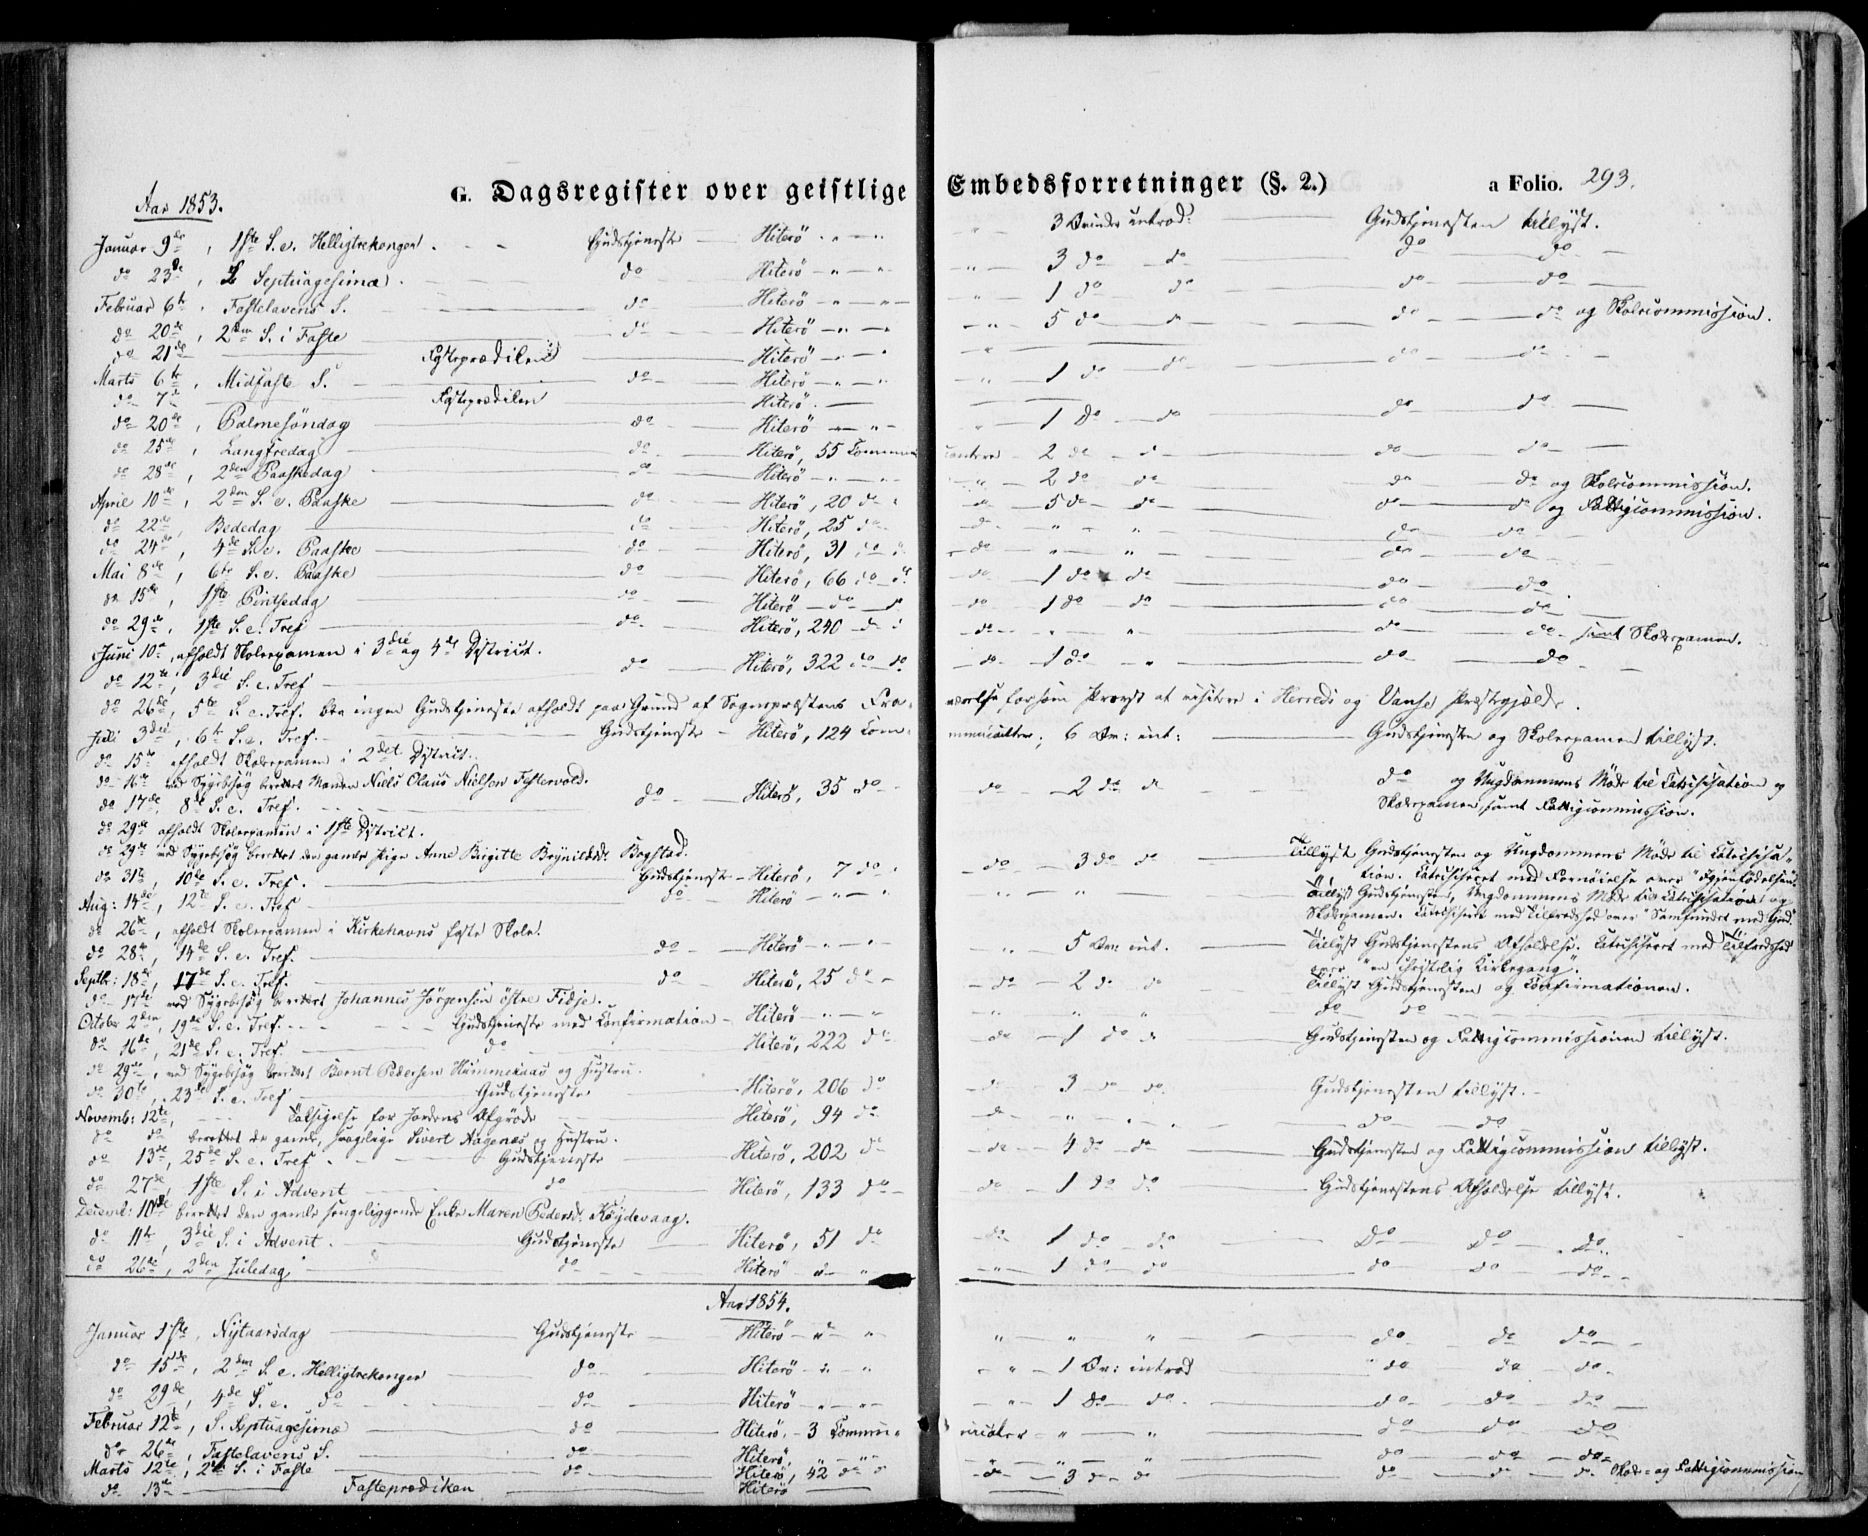 G. Dagsregister over geistlige Embedsforretninger (§. 2.) a Folio. 293.
Aar 1853.
Januar 9de, 1ste S. e. Helligtrekonger. Gudstjeneste Hiterö 3 Qvinder introd: Gudstjenesten tillyst.
do 23de, S. Septuagesima. do Hiterö 3 do do do do
Februar 6te, Fastelavens S. do Hiterö 1 do do do do
do 20de, 2den S. i Faste do Hiterö 5 do do do do og Skolecommission.
do 21de Fasteprædiken Hiterö
Marts 6te, Midfaste S. do Hiterö 1 do do do do
do 7de Fasteprædiken Hiterö
do 20de, Palmesöndag do Hiterö 1 do do do do
do 25de, Langfredag do Hiterö, 55 Communicanter 2 do do do do
do 28de, 2den Paaskedag do Hiterö 2 do do do do og Skolecommission.
April 10de, 2den S. e. Paaske do Hiterö, 20 do 5 do do do do og Fattigcommission.
do 22de, Bededag do Hiterö, 25 do do " " do do
do 24de, 4de S. e. Paaske do Hiterö, 31 do do " " do do
Mai 8de, 6te S. e. Paaske do Hiterö, 66 do do 1 do do do do
do 15de, 1ste Pintsedag do Hiterö do do 1 do do do do
do 29de, 1ste S. e. Tref do Hiterö, 240 do do " " do do samt Skoleexamen.
Juni 10de, afholdt Skoleexamen i 3die og 4de District.
do 12te, 3die S. e. Tref do Hiterö, 322 do do 1 do " do do
do 26de, 5te S. e. Tref. blev ingen Gudstjeneste afholdt paa Grund af Sognepræstens Fraværelse for som Provst at visitere i Herreds og Vanse Præstegjeld.
Juli 3die, 6te S. e. Tref. Gudstjeneste Hiterö, 124 Communicanter, 6 Qv: int: Gudstjenesten og Skoleexamen tillyst.
do 15de afholdt Skoleexamen i 2det District.
do 16de ved Sygebesög berettet Manden Niels Olaus Nielsen Festervold.
do 17de, 8de S. e. Tref. do Hiterö, 35 do do 2 do do do og Ungdommens Möde til Catechisation og
Skoleexamen, samt Fattigcommission.
do 29de afholdt Skoleexamen i 1ste District.
do 29de ved Sygebesög berettet den gamle Pige Anne Birgitte Brynildsd: Bogstad.
do 31te, 10de S. e. Tref. Gudstjeneste Hiterö, 7 do do 3 do do Tillyst Gudstjenesten og Ungdommens Möde til Catechisation. Catechiseret med Fornöielse over "Igjenfödelsen".
Aug: 14de, 12te S. e. Tref do Hiterö " " Tillyst Gudstjenesten, Ungdommens Möde til Catechisation og
Skoleexamen. Catechiseret med Tilfredshed over "Samfundet med Gud".
do 26de, afholdt Skoleexamen i Kirkehavns faste Skole.
do 28de, 14de S. e. Tref. do Hiterö 5 Qv: int. Tillyst Gudstjenestens Afholdelse. Catechiseret med Tilfredshed
over "en christelig Kirkegang".
Septbr: 18de, 17de S. e. Tref. do Hiterö, 25 do do 2 do do Tillyst Gudstjenesten og Confirmationen.
do 17de ved Sygebesög berettet Johannes Jörgensen östre Fidje.
October 2den, 19de S. e. Tref. Gudstjeneste med Confirmation Hiterö " " " do do
do 16de, 21de S. e. Tref. do Hiterö, 222 do do 1 do do Gudstjenesten og Fattigcommissionen tillyst.
do 29de, ved Sygebesög berettet Bernt Pedersen Hummeraas og Hustru.
do 30te, 23de S. e. Tref Gudstjeneste Hiterö, 206 do do 3 do do Gudstjenesten tillyst.
Novemb: 12te, Taksigelse for Jordens Afgröde Hiterö, 94 do do " " do do
do do berettet de gamle, svagelige Sivert Aagenæs og Hustru.
do 13de, 25de S. e. Tref. Gudstjeneste Hiterö, 202 do do 4 do do Gudstjenesten og Fattigcommission tillyst.
do 27de, 1ste S. i Advent do Hiterö, 133 do do 1 do do Gudstjenestens Afholdelse tillyst.
Decemb: 10de berettet den gamle sengeliggende Enke Maren Pedersd: Röydevaag.
do 11te, 3die S. i Advent. Gudstjeneste Hiterö, 51 do do 1 do do Do Do Do
do 26de, 2den Juledag do Hiterö " 1 do do do do do
Aar 1854.
Januar 1ste, Nytaarsdag Gudstjeneste Hiterö " " " do do do
do 15de, 2den S. e. Helligtrekonger do Hiterö " 1 Qv: introd do do do
do 29de, 4de S. e. do do Hiterö " 1 do do do do do
Februar 12te, S. Septuagesima do Hiterö, 3 Communicanter " " do do do
do 26de, Fastelavens S. do Hiterö " " do do do
Marts 12te, 2den S. i Faste do Hiterö, 42 do do 3 do do do do do Skole- og Fattigcommission
do 13de Fasteprædiken Hiterö